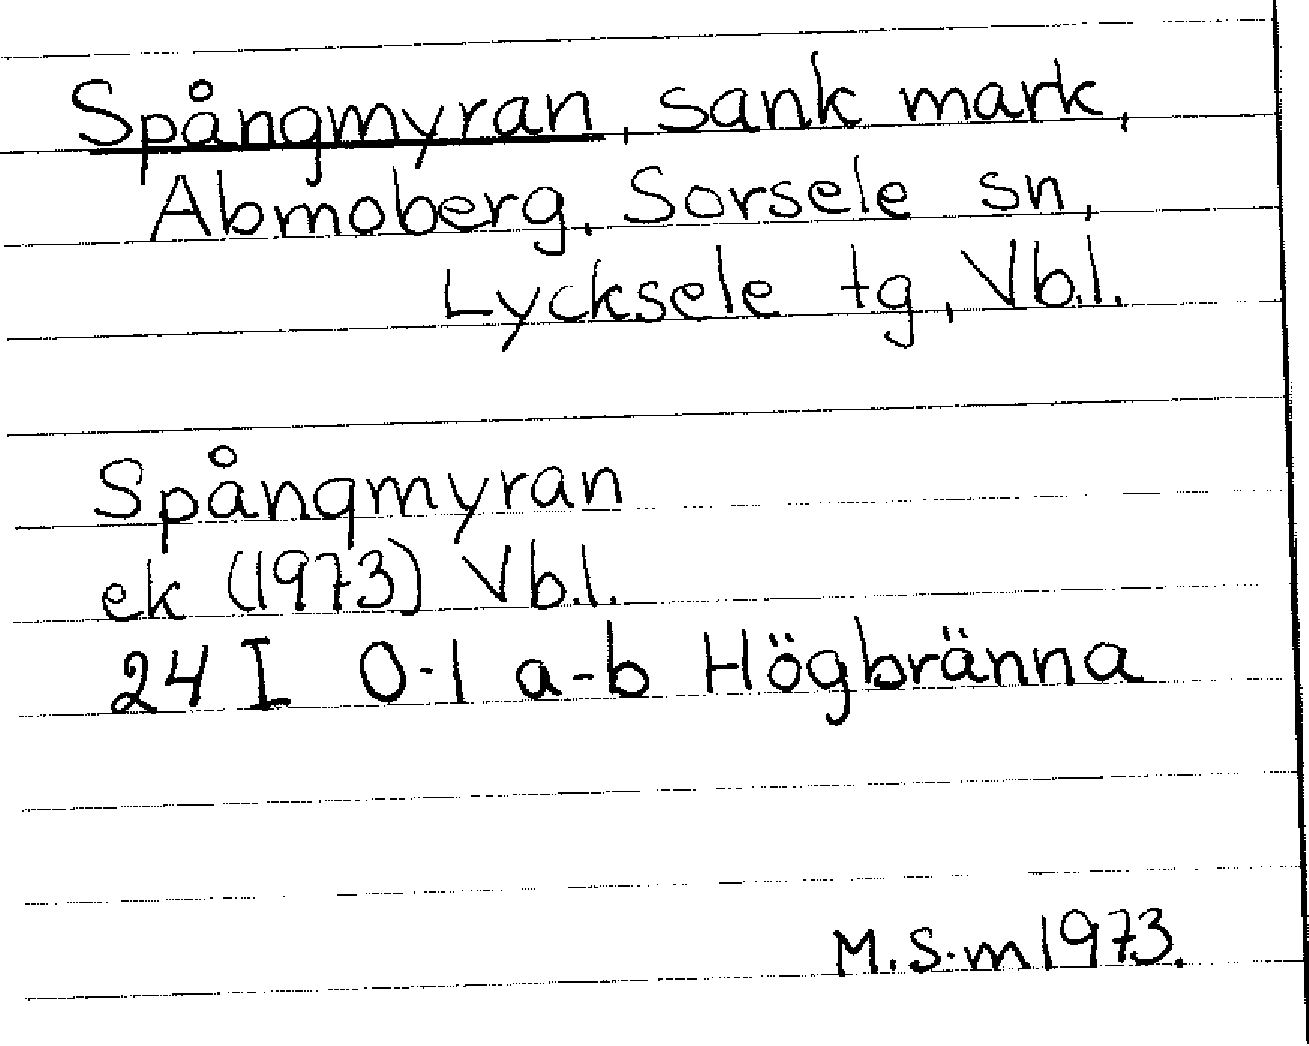 Spångmyran, sank mark,
Abmoberg, Sorsele sn,
Lycksele tg, Vb.l.
Spångmyran
ek (1973) Vb.l.
24 I 0-1 a-b Högbränna
M.S-m 1973.